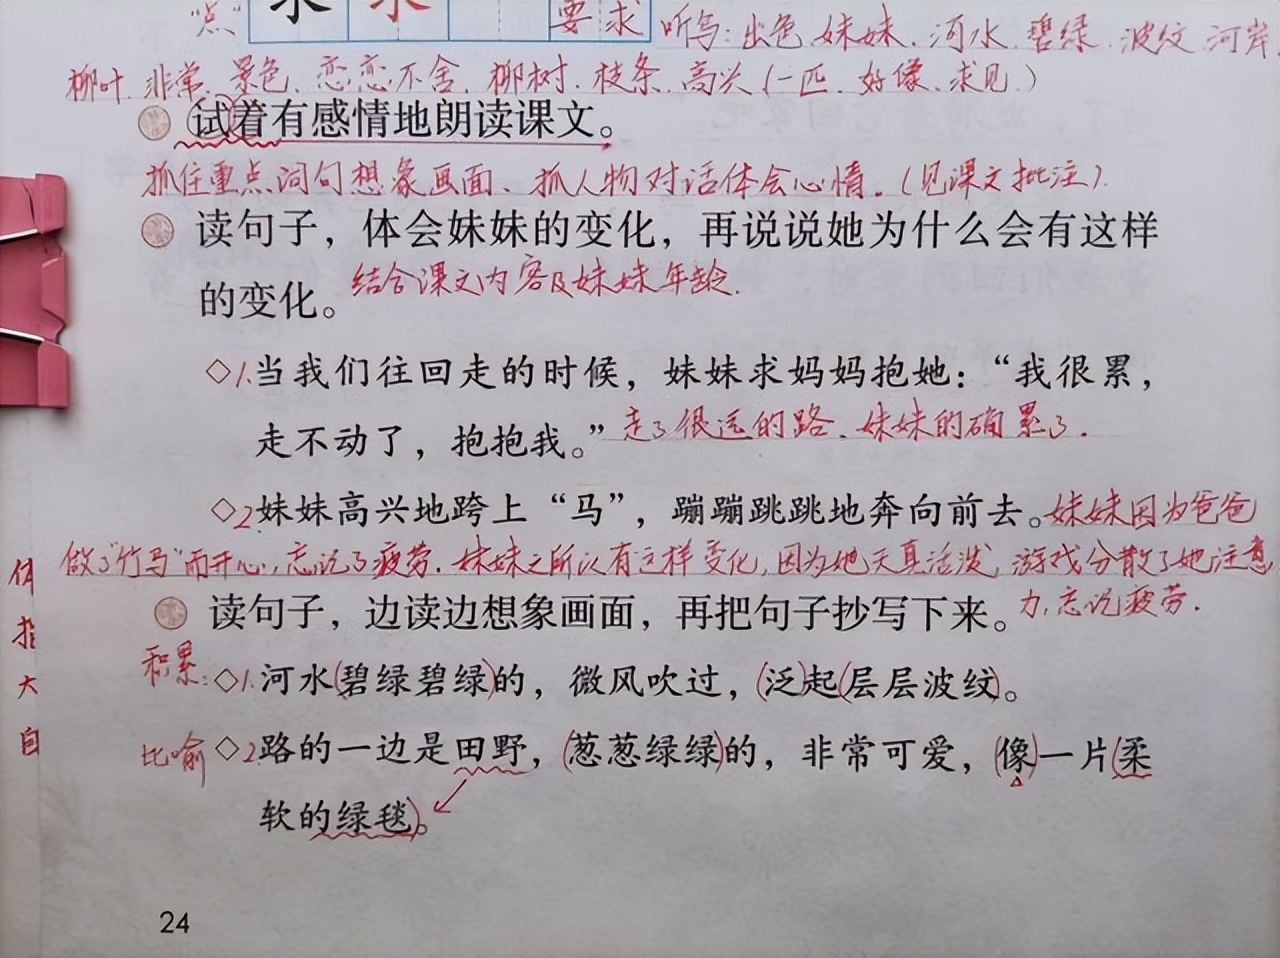 “点” 求 求 要 求 听写：出色、妹妹、河水、碧绿、波纹、河岸
柳叶、非常、景色、恋恋不舍、柳树、枝条、高兴（一匹、好像、求见）
试着有感情地朗读课文。
抓住重点词句想象画面、抓人物对话体会心情。（见课文批注）
读句子，体会妹妹的变化，再说说她为什么会有这样
的变化。 结合课文内容及妹妹年龄.
◇1.当我们往回走的时候，妹妹求妈妈抱她：“我很累，
走不动了，抱抱我。” 走了很远的路、妹妹的确累了.
◇2妹妹高兴地跨上“马”，蹦蹦跳跳地奔向前去。妹妹因为爸爸
做了“竹马”而开心，忘记了疲劳. 妹妹之所以有这样变化，因为她天真活泼，游戏分散了她注意
读句子，边读边想象画面，再把句子抄写下来。 力，忘记疲劳.
积累：◇1.河水(碧绿碧绿)的，微风吹过，(泛)起(层层波纹)。
比喻 ◇2.路的一边是田野，(葱葱绿绿)的，非常可爱，(像)一片(柔
软的绿毯)。
大
自
24